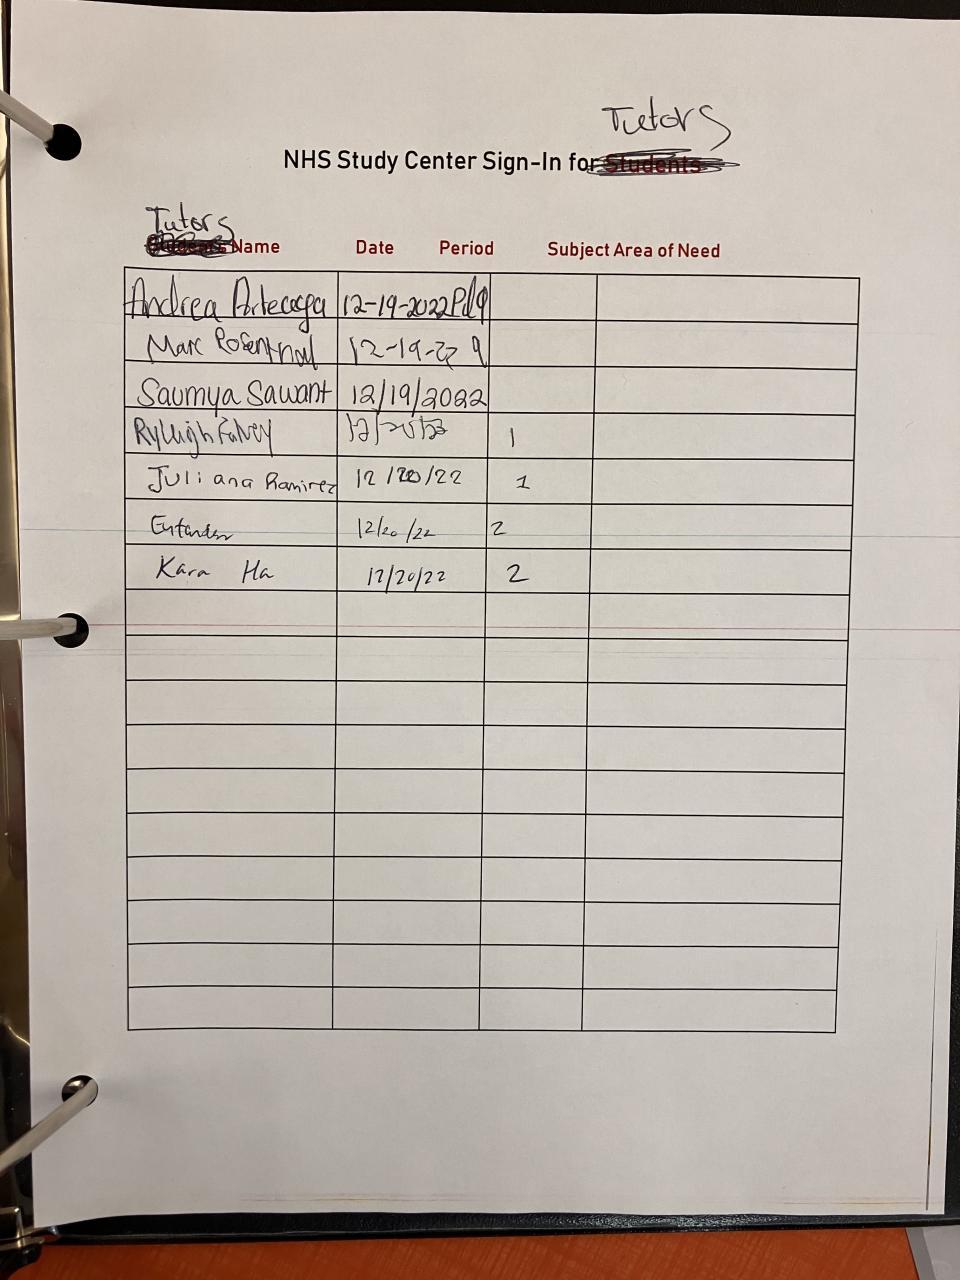 Tutors
NHS Study Center Sign-In for Students
Tutors
Students Name Date Period Subject Area of Need
Andrea Arteaga 12-19-2022 Pd 9
Marc Rosenthal 12-19-22 9
Saumya Sawant 12/19/2022
Ryleigh 1
Juliana Ramirez 12/20/22 1
12/20/22 2
Kara Ha 12/20/22 2